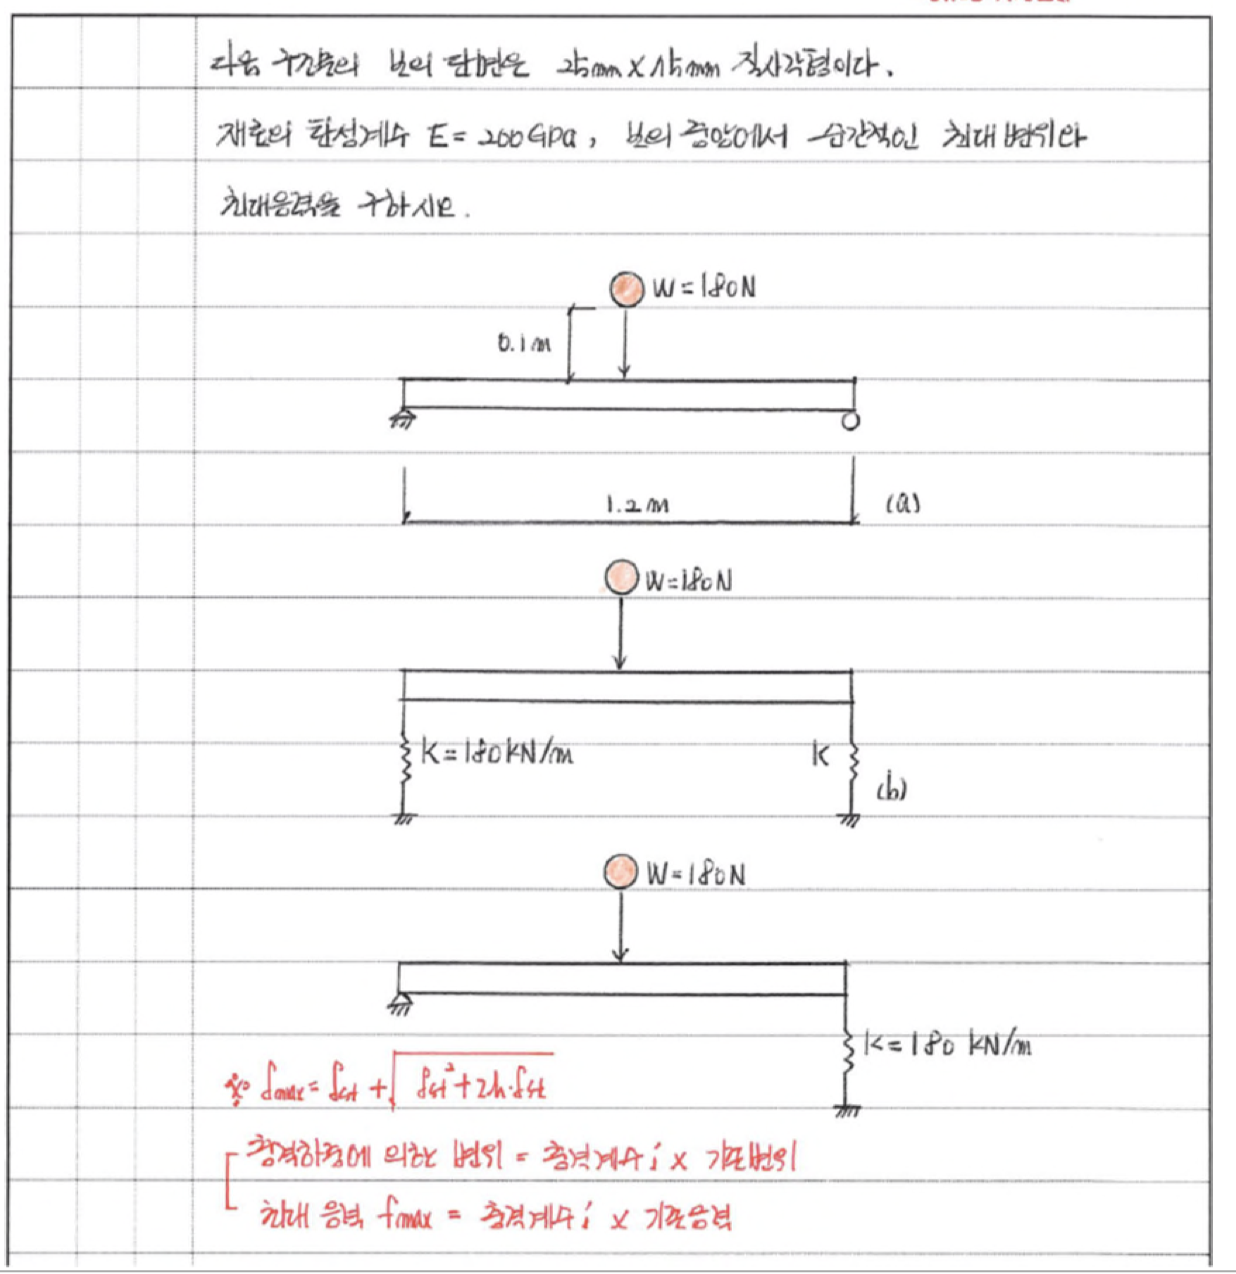 다음 구조물의 보의 단면은 25mm X 75mm 직사각형이다.
재료의 탄성계수 E = 200GPa, 보의 중앙에서 순간적인 최대변위와
최대응력을 구하시오.
W = 180N
0.1m
1.2m
(a)
W=180N
k=180kN/m
k
(b)
W=180N
k=180 kN/m
※ δmax = δst + √δst² + 2h·δst
충격하중에 의한 변위 = 충격계수 i x 기존변위
최대 응력 fmax = 충격계수 i x 기존응력